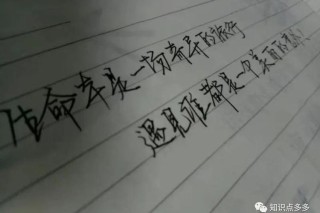 生命本是一场奇异的旅行
遇见谁都是一个美丽的意外
知识点多多